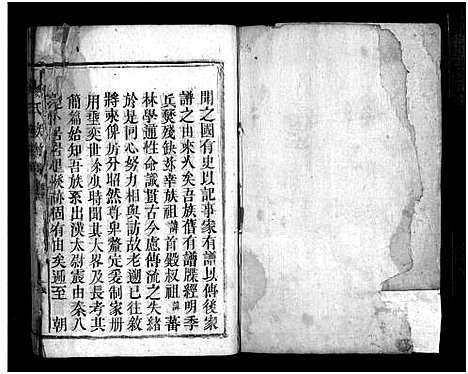 聞之國有史以記事家有譜以傳後家
譜之由來久矣吾族舊有譜牒經明季
兵燹殘缺茲幸族祖諱首毅叔祖諱蕃
林學通性命識貫古今慮傳流之失緒
於是同心努力相與訪故老遡已往敘
將來俾房分昭然尊卑釐定爰制家册
用垂奕世余幼時聞其大畧及長考其
簡篇始知吾族系出漢太尉震由秦八
居 跡固有由矣遞至 朝